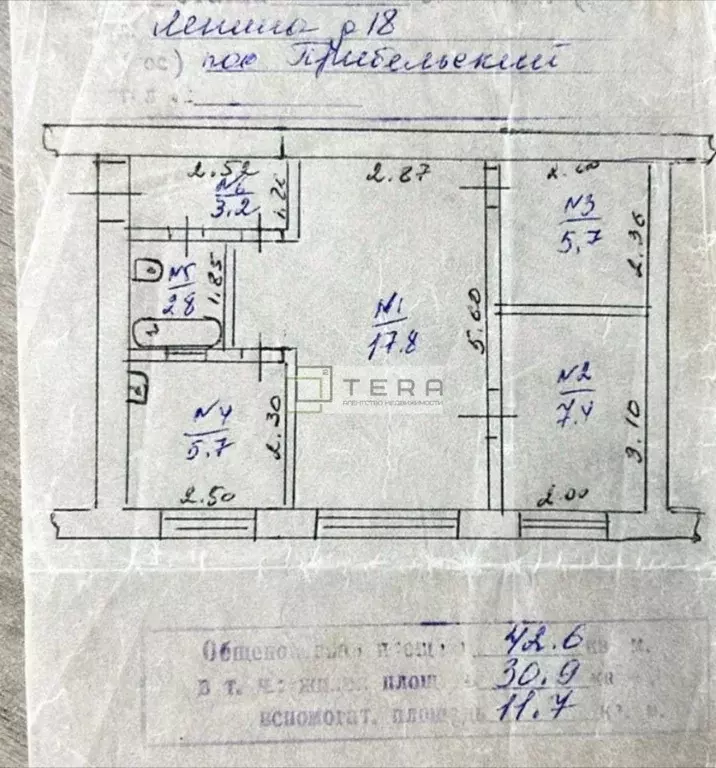 Ленина д 18
ос) пос Прибельский
2.52
2.87
2.60
№6
3.2
1.26
№3
5,7
2.36
№5
2.8
1.85
№1
17.8
5.60
TERA
АГЕНТСТВО НЕДВИЖИМОСТИ
№2
7.4
3.10
№4
5.7
2.30
2.50
2.00
площ 42.6 кв м.
в т. ч. жилая площ 30,9 кв
вспомогат. площадь 11.7 кв. м.